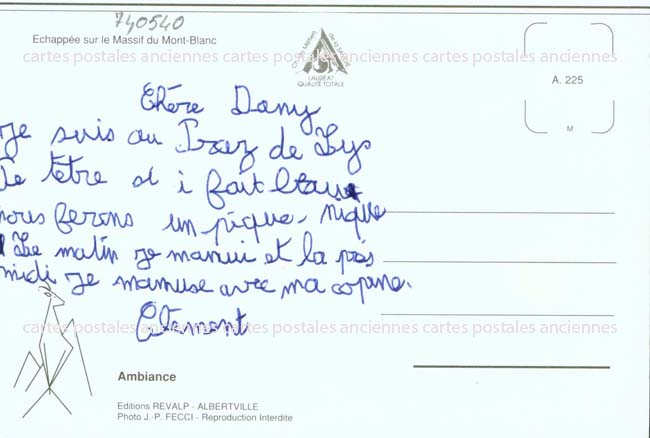 740540
Echappée sur le Massif du Mont-Blanc
LAURÉAT
QUALITÉ TOTALE
A. 225
M
cartes postales anciennes cartes postales anciennes cartes postales anciennes
Chère Dany
Je suis au Praz de Lys
fait
nous ferons un pique-nique
Le matin je manui et la près
midi je mamuse avec ma copine.
Clément
cartes postales anciennes cartes postales anciennes cartes postales anciennes
Ambiance
Editions REVALP - ALBERTVILLE
Photo J.-P. FECCI - Reproduction Interdite